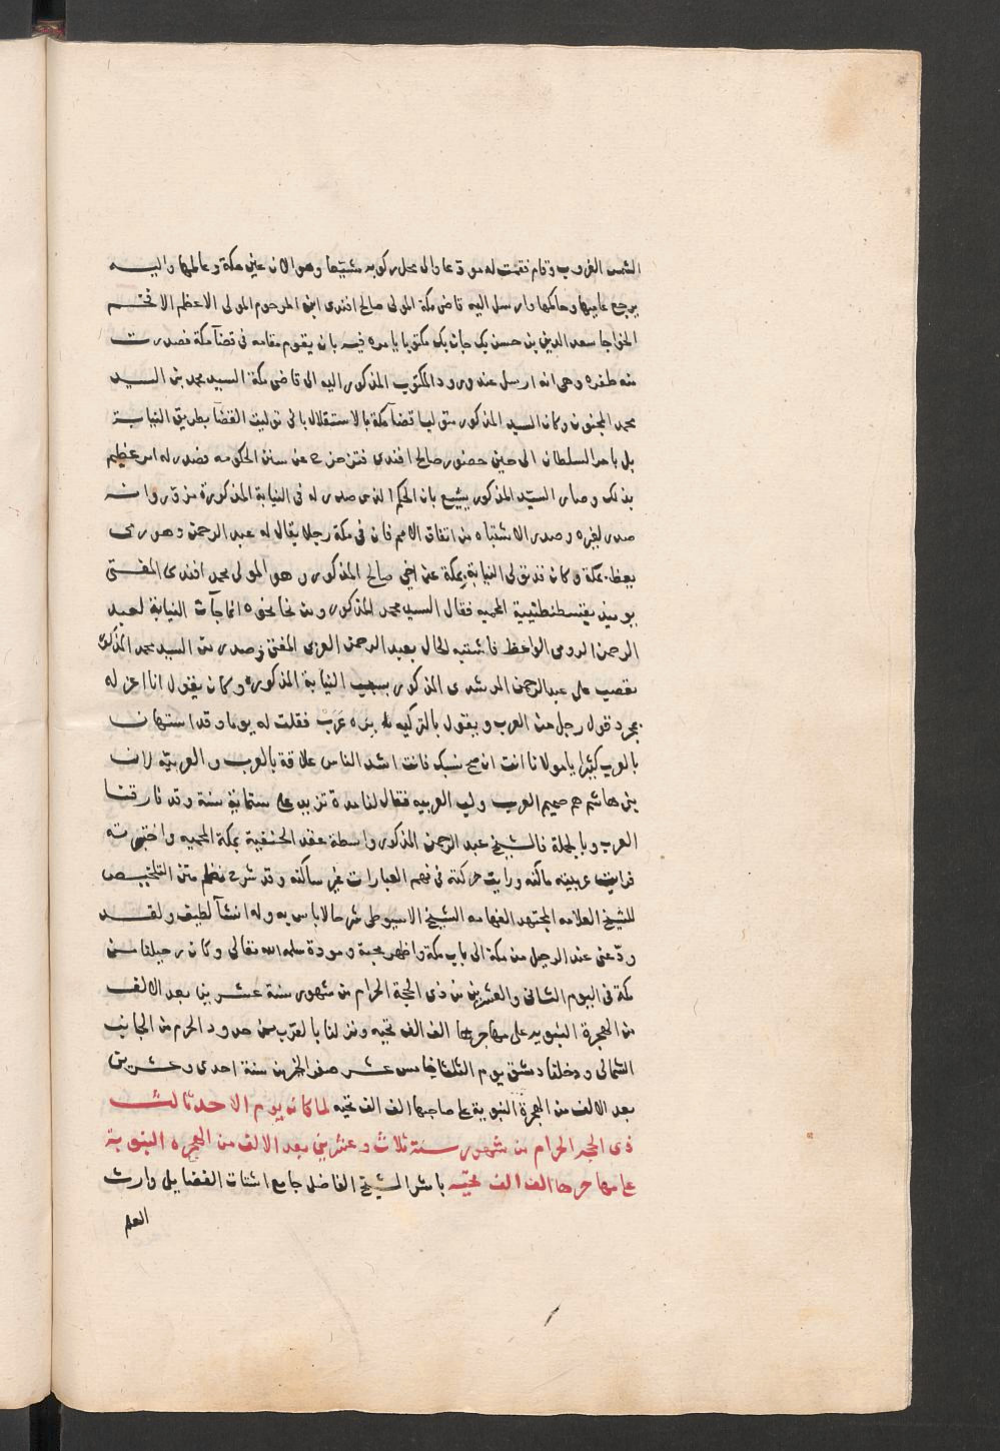 الشمس الغروب وقام فقمت له مودعا والى محل ركوبه مشيّعا وهو الان عين مكة وعالمها واليه
يرجع عاميها وحاكمها وارسل اليه قاضى مكة المولى صالح افندى ابن المرحوم المولى الاعظم الافخم
الخواجا سعد الدين بن حسن بك جان بك مكتوبا يامره فيه بان يقوم مقامه فى قضآ مكة فصدرت
منه طفره وهى انه ارسل عند ورود المكتوب المذكور اليه الى قاضى مكة السيد محمد بن السيد
محمد المجنون وكان السيد المذكور متوليا قضآ مكة بالاستقلال بالى توليت القضآ بطريق النيابة
بل بامر السلطان الى حين حضور صالح افندى فتزحزح عن سنن الحكومه فصدر له امر عظيم
بذلك وصار السيّد المذكور يشيع بان الحكم الذى صدر له فى النيابة المذكورة مزور وانه
صدر لغيره وصدر الاشتباه من اتفاق الاسم فان فى مكة رجلا يقال له عبد الرحمن وهو رومى
يعظ بمكة وكان قد تولى النيابة بمكة عن اخى صالح المذكور وهو المولى محمد افندى المفتى
يوميذ بقسطنطينية المحميه فقال السيد محمد المذكور ومن نحا نحوه انما جآت النيابة لعبد
الرحمن الرومى الواعظ فاشتبه الحال بعبد الرحمن العربى المفتى وصدر من السيد محمد المذكور
تعصب على عبد الرحمن المرشدى المذكور بسبب النيابة المذكوره وكان يقول انا اعزله
بمجرد قول رجل من العرب ويقول بالتركيه بره عَرَبْ فقلت له يوما وقد استهان
بالعرب كثيرا يا مولانا انت ان صح نسبك فانت اشد الناس علاقة بالعرب والعربيّه لان
بنى هاشم هم صميم العرب ولب العربيه فقال لنا مدة تزيد على ستماية سنة وقد فارقنا
العرب وبالجملة فالشيخ عبد الرحمن المذكور واسطة عقد الحنفية بمكة المحميه واختبرته
فرايت عربيته مالكة ورايت حركته فى فهم العبارات غير ساكنه وقد شرح نظم متن التلخيص
للشيخ العلامه المجتهد الفهامه الشيخ الاسيوطى شرحا لاباس به وله انشآ لطيف ولقد
ودّعنى عند الرحيل من مكة الى باب مكة واظهر محبة ومودة سلمه الله تعالى وكان رحيلنا من
مكة فى اليوم الثانى والعشرين من ذى الحجة الحرام من شهور سنة عشرين بعد الالف
من الهجرة النبويه على مهاجرها الف الف تحيه ونزلنا بالقرب من حدود الحرم من الجانب
الشمالى ودخلنا دمشق يوم الثلثا خامس عشر صفر الخير من سنة احدى وعشرين
بعد الالف من الهجرة النبوية على صاحبها الف الف تحيه لما كان يوم الاحد ثالث
ذى الحجه الحرام من شهور سنة ثلاث وعشرين بعد الالف من الهجره النبوية
على مهاجرها الف الف تحيّه باشر الشيخ الفاضل جامع اشتات الفضايل وارث
العلم